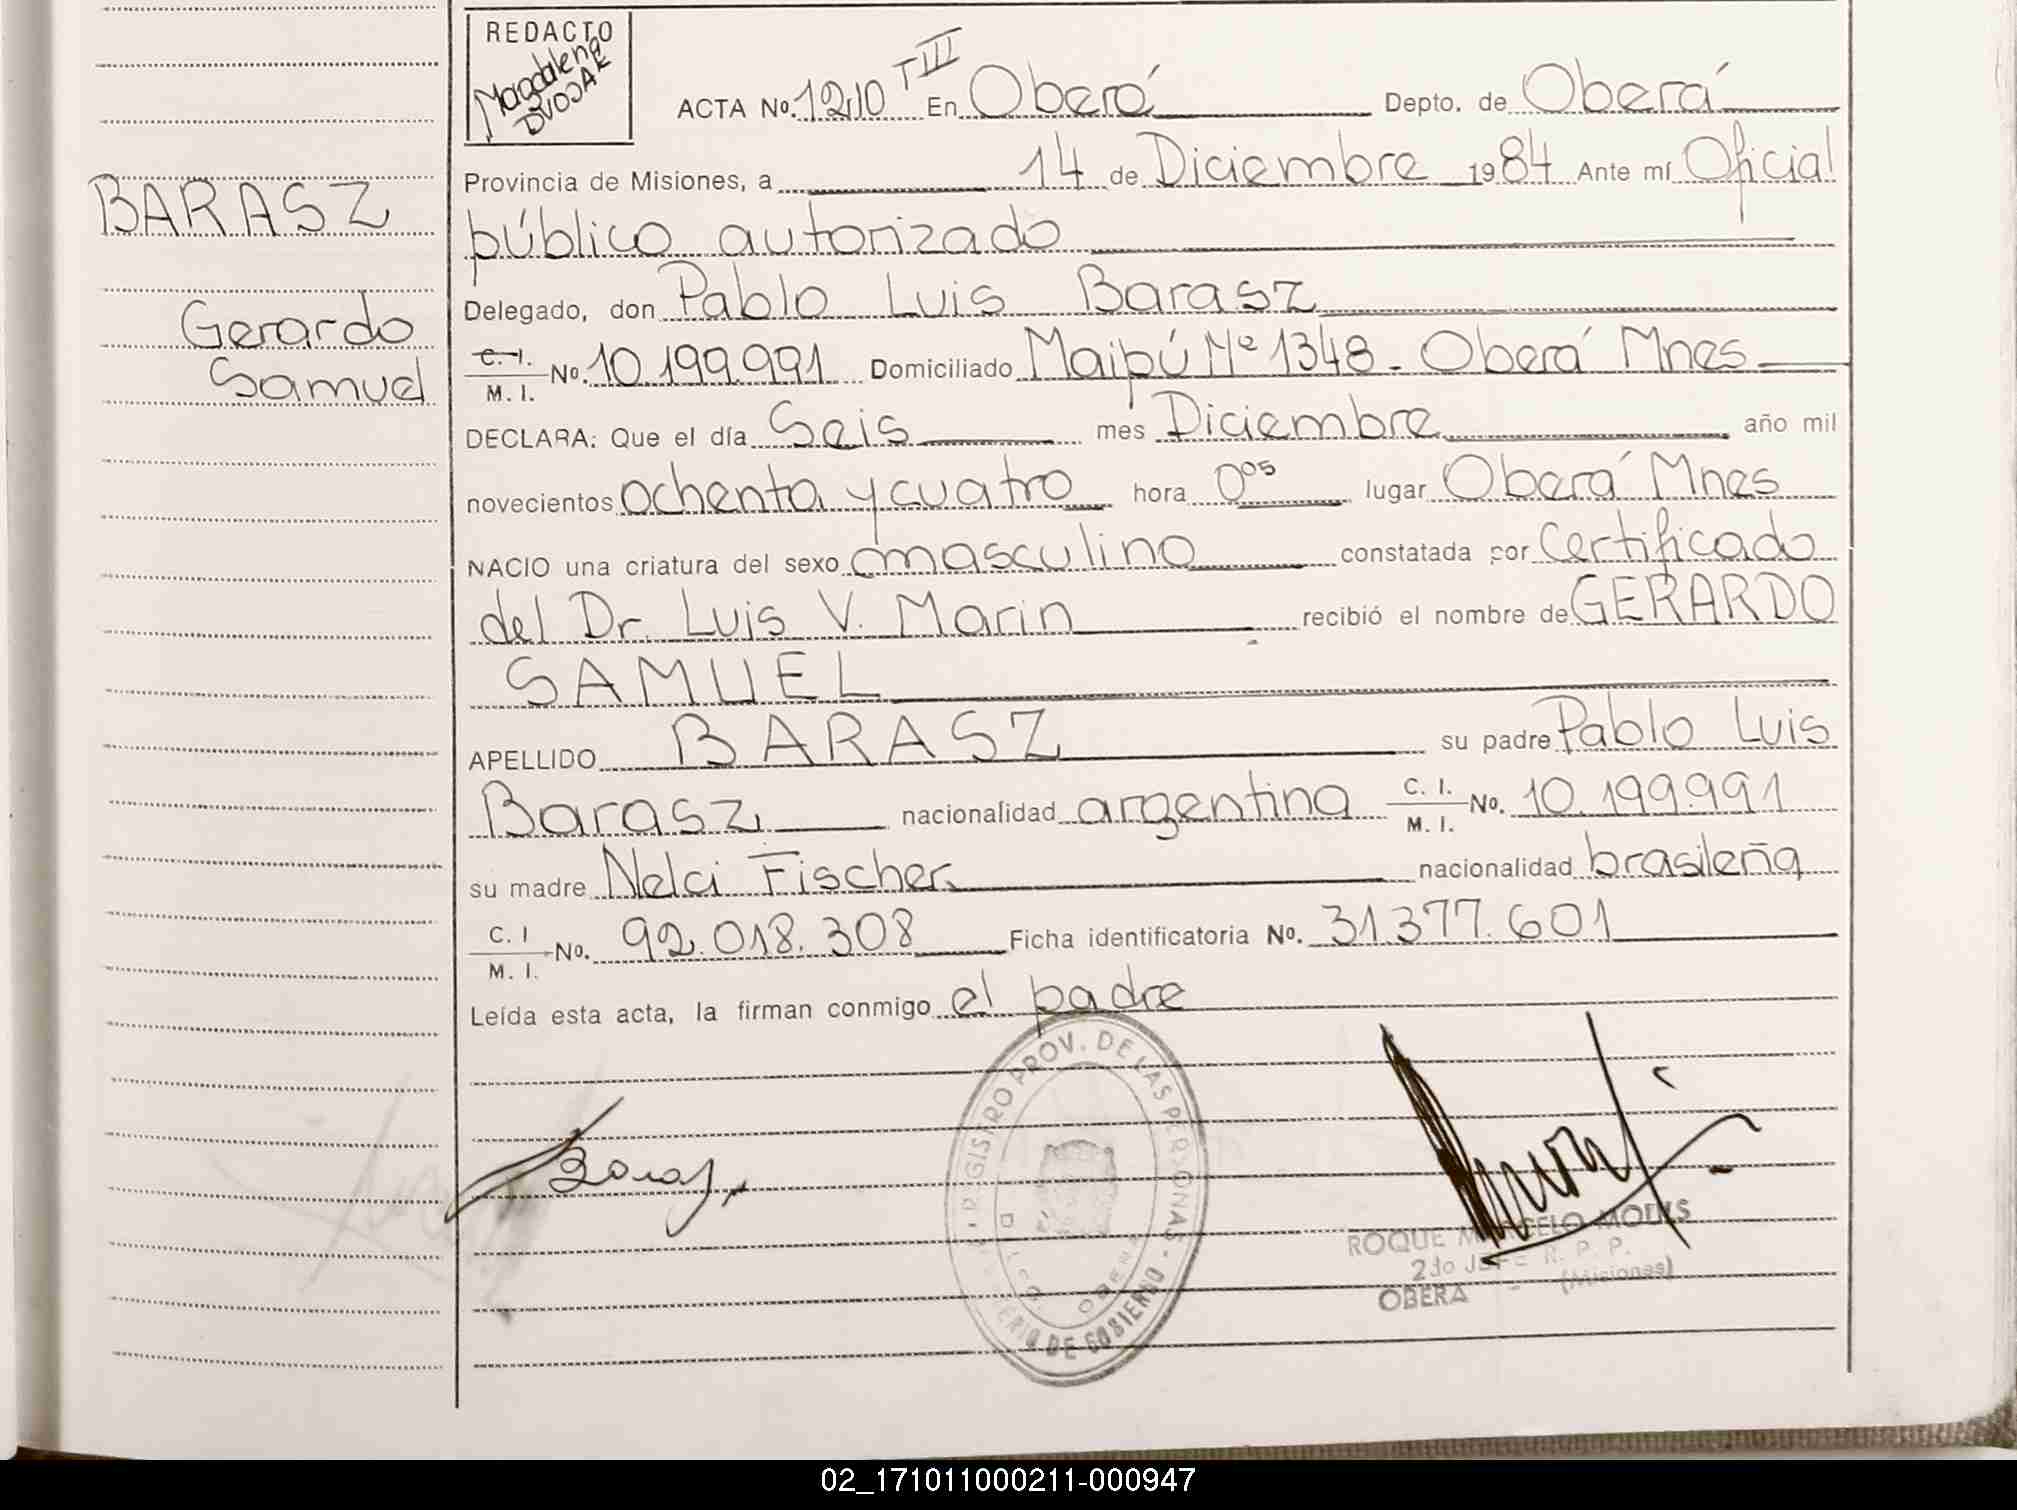 REDACTO
Magdalena
DVOJAK
ACTA No. 1210 TIII En Oberá Depto. de Oberá
Provincia de Misiones, a 14 de Diciembre 1984 Ante mí Oficial
público autorizado
BARASZ
Delegado, don Pablo Luis Barasz
Gerardo
Samuel
C. I.
M. I. No. 10.199.991 Domiciliado Maipú Nº 1348. Oberá Mnes
DECLARA: Que el día Seis mes Diciembre año mil
novecientos ochenta y cuatro hora 0⁰⁵ lugar Oberá Mnes
NACIO una criatura del sexo masculino constatada por Certificado
del Dr. Luis V. Marin recibió el nombre de GERARDO
SAMUEL
APELLIDO BARASZ su padre Pablo Luis
Barasz nacionalidad argentina C. I.
M. I. No. 10.199.991
su madre Nelci Fischer nacionalidad brasileña
C. I
M. I. No. 92.018.308 Ficha identificatoria No. 31.377.601
Leída esta acta, la firman conmigo el padre
REGISTRO PROV. DE LAS PERSONAS - MINISTERIO DE GOBIERNO
ROQUE MARCELO
2do JEFE R. P. P.
OBERA - (Misiones)
02_171011000211-000947